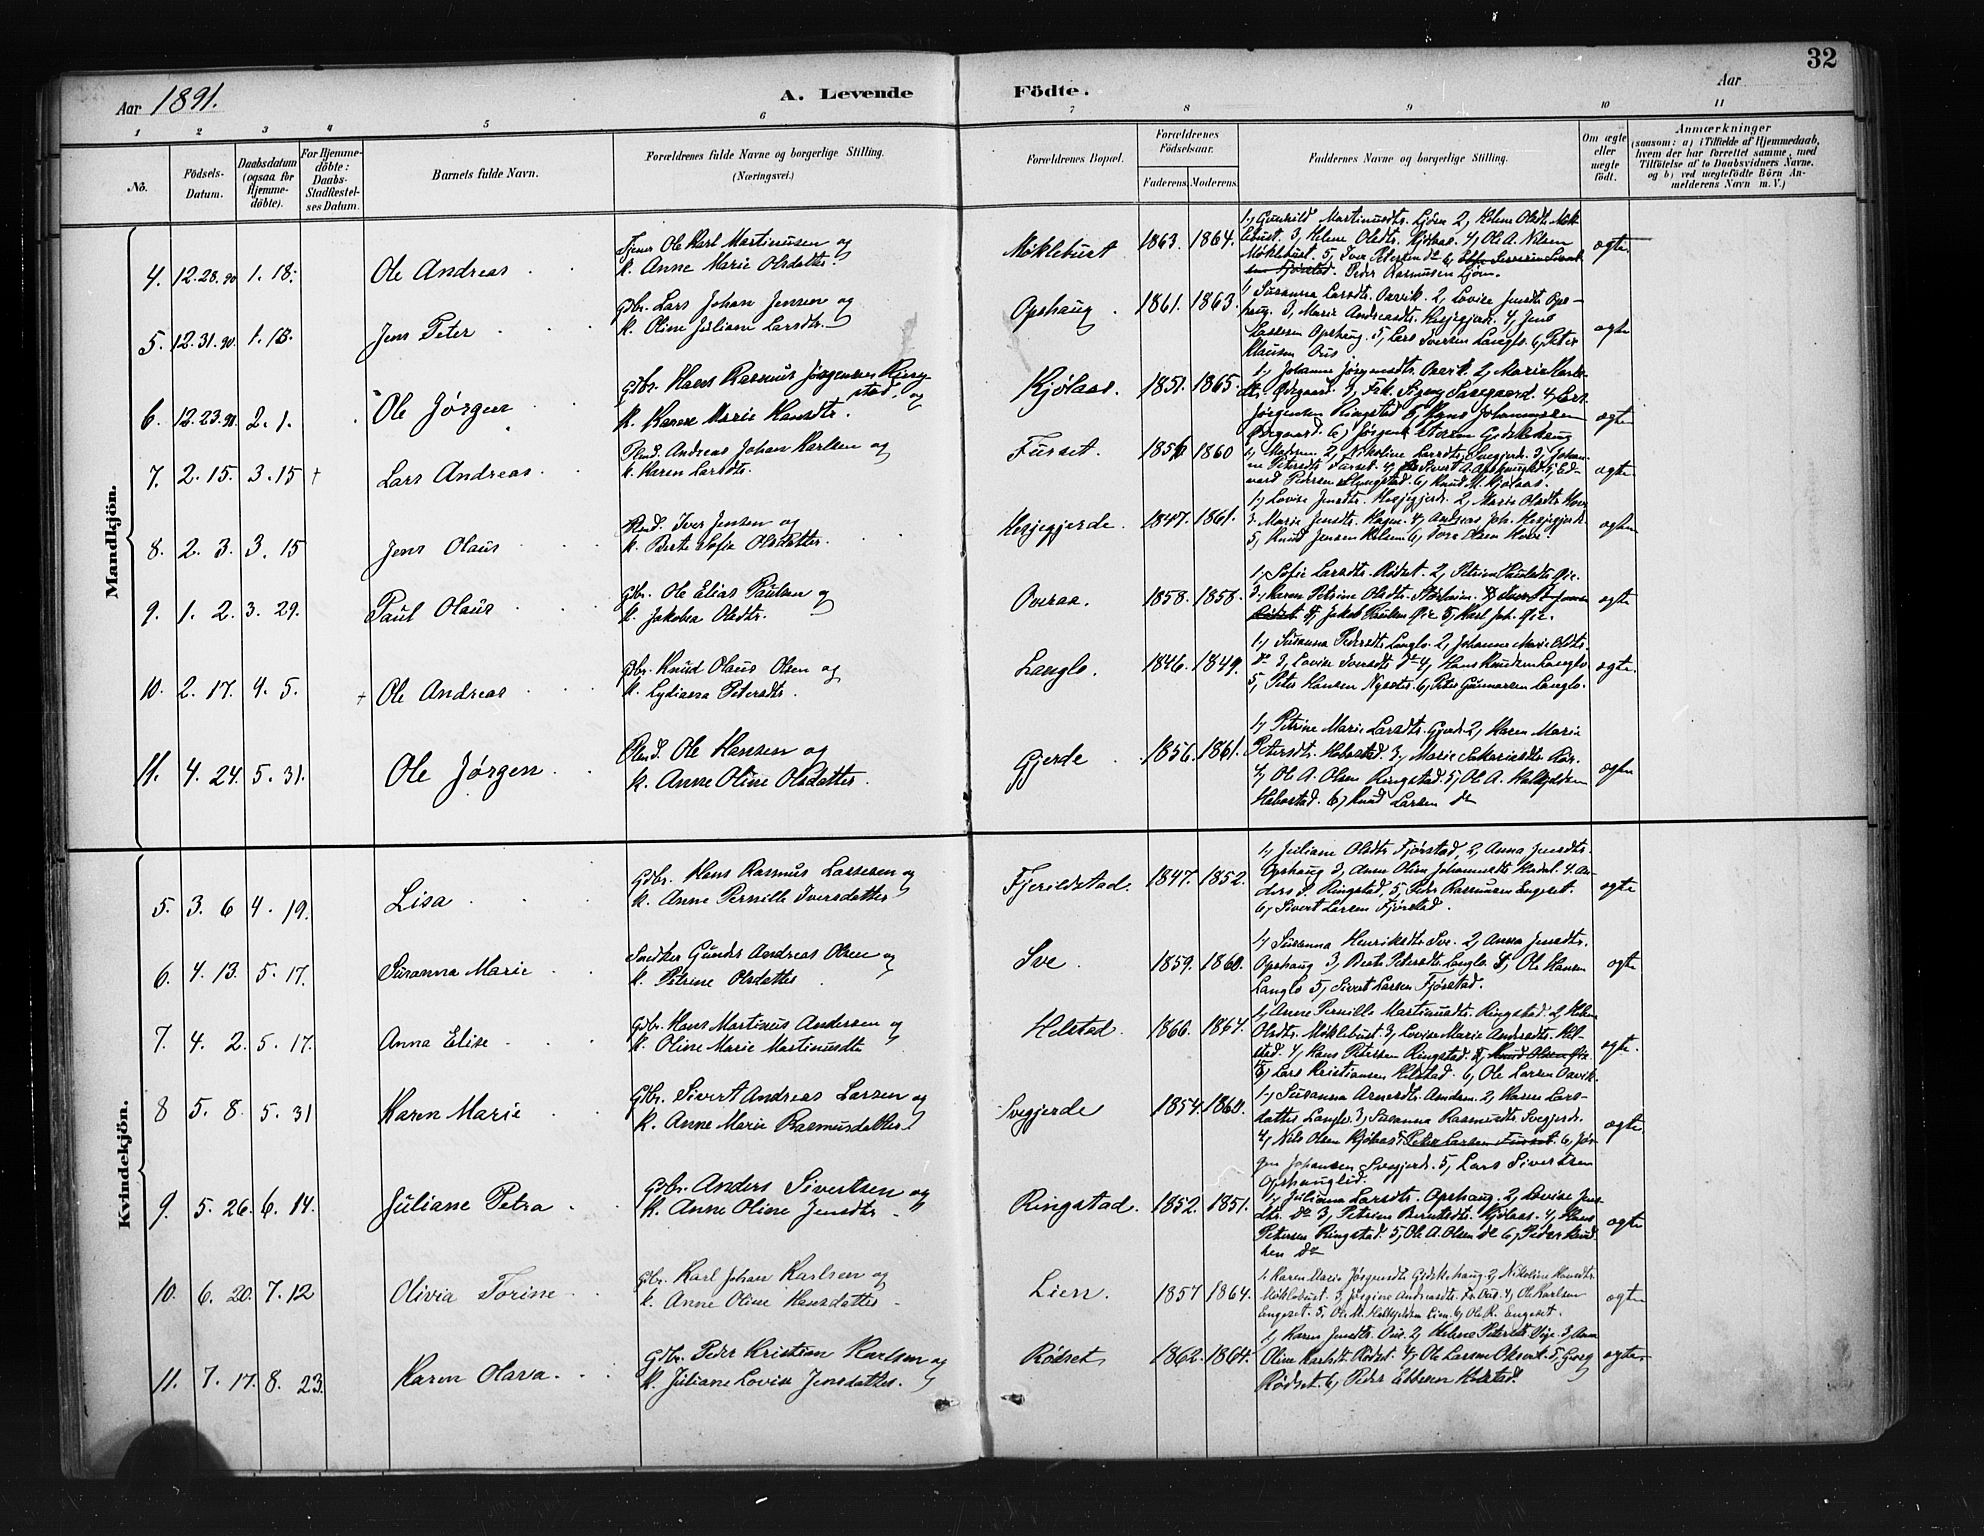 32
Aar 1891. A. Levende Födte. Aar
1 2 3 4 5 6 7 8 9 10 11
No. Födsels-Datum. Daabsdatum (ogsaa for Hjemme-döbte). For Hjemme-döbte: Daabs-Stadfæstel-ses Datum. Barnets fulde Navn. Forældrenes fulde Navne og borgerlige Stilling. (Næringsvei.) Forældrenes Bopæl. Forældrenes Födselsaar. Faderens. Moderens. Faddernes Navne og borgerlige Stilling. Om ægte eller uægte födt. Anmærkninger (saasom: a) i Tilfælde af Hjemmedaab, hvem der har forrettet samme, med Tilföielse af to Daabsvidners Navne. og b) ved uægtefödte Börn An-melderens Navn m. V.)
Mandkjön.
4. 12.28.90 1. 18. Ole Andreas Ole Karl Martinusen og
K. Anne Marie Olsdatter. Møklebust 1863. 1864. 1, Gunhild Martinusdtr. Gjøen 2, Helene Olsdtr. Møk-
lebust. 3, Helene Olsdtr. Kjölaas. 4, Ole A. Nilsen
Møklebust. 5, Iver Petersen do 6,
Peder Rasmusen Gjøen. ægte
5. 12.31.90. 1. 18. Jens Peter Gbr. Lars Johan Jensen og
K. Oline Juliane Larsdtr. Opshaug. 1861. 1863. 1, Susanna Larsdtr. Aarvik. 2, Lovise Jensdtr. Ops-
haug. 3, Marie Andreasdtr. Hegjegjerde. 4, Jens
Lassesen Opshaug. 5, Lars Iversen Langlo. 6, Peter
Klausen Ous. ægte
6. 12.23.90. 2. 1. Ole Jørgen Gbr. Hans Rasmus Jørgensen Ring-
stad og
K. Karen Marie Hansdtr. Kjölaas. 1851. 1865. 1, Johanne Jørgensdtr. Aarvik. 2, Marie
Ødegaard. 3, Frk. Signy Sævegaard. 4, Lars
Jørgensen Ringstad 5, Hans Johannessen
Ødegaard. 6, Jørgen Giskehaug ægte
7. 2. 15. 3. 15 + Lars Andreas. Andreas Johan Karlsen og
K. Karen Larsdtr. Fusset. 1856 1860 1, Madsen. 2, Nikoline Larsdtr. Svegjerde. 3, Johan-
ne Petersdtr. Fusset. 4, Sivert A. Opshauglid. 5, Ed-
vard Pedersen 6, Knud M. Kjölaas. ægte
8. 2. 3. 3. 15 Jens Olaus Iver Jensen og
K. Berte Sofie Olsdatter. Hegjegjerde. 1847. 1861. 1, Lovise Jensdtr. Hegjegjerde. 2, Marie Olsdtr.
3, Marie Jensdtr. Hagen. 4, Andreas Joh. Hegjegjerde.
5, Knud Jensen 6, Tore Olsen ægte
9. 1. 2. 3. 29. Paul Olaus Gbr. Ole Elias Paulsen og
K. Jakobea Olsdtr. Overaa. 1858. 1858. 1, Sofie Larsdtr. Rødset. 2, Petrine Paulsdtr. Gie.
3, Karen Petrine Olsdtr.
Rødset 4, Jakob Paulsen Gie 5, Karl Joh. Gie. ægte
10. 2. 17. 4. 5. + Ole Andreas Gbr. Knud Olaus Olsen og
K. Lydianna Petersdtr. Langlo. 1846. 1849. 1, Susanna Pedersdtr. Langlo. 2, Johanne Marie Olsdtr.
do 3, Lovise Iversdtr. do 4, Hans Knudsen Langlo.
5, Peter Hansen 6, Peter Gunnarsen Langlo. ægte.
11. 4. 24. 5. 31. Ole Jørgen. Ole Hansen og
K. Anne Oline Olsdatter. Gjerde 1856. 1861. 1, Petrine Marie Larsdtr. Gjerde. 2, Karen Marie
Petersdtr. Hobostad 3, Marie Sakariasdtr.
4, Ole A. Olsen Ringstad. 5, Ole A. Halkjelsen
Hobostad. 6, Knud Larsen do ægte
Kvindekjön.
5. 3. 6 4. 19. Lisa Gbr. Hans Rasmus Lassesen og
K. Anne Pernille Iversdatter Fjerildstad. 1847. 1852. 1, Juliane Olsdtr. Fjørstad, 2, Anna Jensdtr.
Opshaug 3, Anne Oline Johannesdtr. 4, An-
ders S. Ringstad, 5, Peder Rasmusen Engeset.
6, Sivert Larsen Fjørstad. ægte
6. 4. 13. 5. 17. Susanna Marie Snedker Gunder Andreas Olsen og
K. Petrine Olsdatter. Sve. 1859. 1860. 1, Susanna Henriksdtr. Sve. 2, Anna Jensdtr.
Opshaug 3, Beate Petersdtr. Langlo 4, Ole Hansen
Langlo 5, Sivert Larsen Fjørstad. ægte
7. 4. 2. 5. 17. Anna Elise Gbr. Hans Martinus Andersen og
K. Oline Marie Martinusdtr. Helstad. 1866. 1864. 1, Anne Pernille Martinusdtr. Ringstad. 2, Helene
Olsdtr. Møklebust. 3, Lovise Marie Andersdtr. Hel-
stad. 4, Hans Petersen Ringstad. 5, Knud Olsen Gie
5, Lars Kristiansen Helstad. 6, Ole Larsen Aarvik. ægte.
8 5. 8. 5. 31 Karen Marie Gbr. Sivert Andreas Larsen og
K. Anne Marie Rasmusdatter. Svegjerde 1854. 1860. 1, Susanna Arnesdtr. 2, Karen Lars-
datter Langlo 3, Susanna Rasmusdtr. Svegjerde.
4, Nils Olsen Kjölaas. Peter Larsen Fusset. 6, Jør-
gen Johansen Svegjerde. 5, Lars Sivertsen
Opshauglid. ægte
9. 5. 26. 6. 14. Juliane Petra Gbr. Anders Sivertsen og
K. Anne Oline Jensdtr. Ringstad. 1852. 1851. 1, Juliane Larsdtr. Opshaug. 2, Lovise Jens-
dtr. do 3, Petrine Berntsdtr. Kjölaas. 4, Hans
Petersen Ringstad. 5, Ole A. Olsen do 6, Peder Knud-
sen do ægte
10. 6. 20. 7. 12 Olivia Torine Gbr. Karl Johan Karlsen og
K. Anne Oline Hansdatter. Lien. 1857 1864. 1, Karen Marie Jørgensdtr. Giskehaug. 2, Nikoline Hansdtr.
Møklebust. 3, Jørgine Andreasdtr. Ous. 4, Ole Karlsen
Engeset. 5, Ole M. Halkjelsen Lien. 6, Ole R. Engeset. ægte
11. 7. 17. 8. 23. Karen Olava. Gbr. Peder Kristian Karlsen og
K. Juliane Lovise Jensdatter. Rødset 1862. 1864. 1, Karen Jensdtr. Ous. 2, Helene Petersdtr. 3, Anne
Oline Karlsdtr. Rødset. 4, Ole Larsen 5, Georg
Rødset. 6, Peder Ebbesen Helstad. ægte